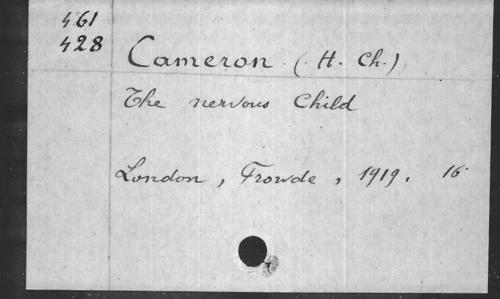 461
428
Cameron (H. Ch.)
The nervous Child
London, Frowde, 1919. 16